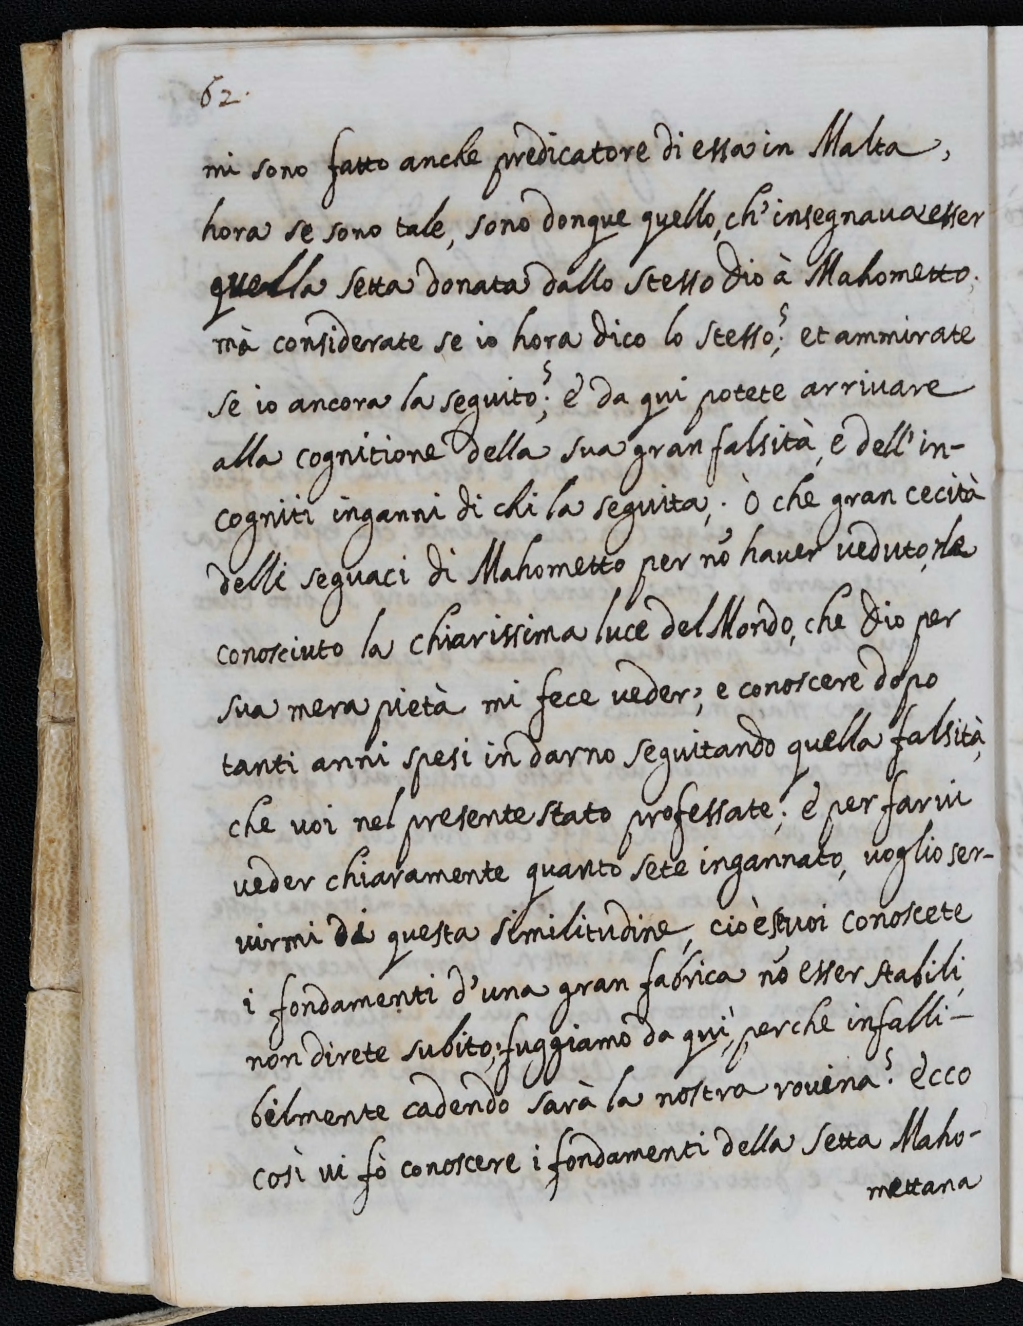 62.
mi sono fatto anche predicatore di essa in Malta,
hora se sono tale, sono donque quello, ch'insegnaua esser
quella setta donata dallo stesso Dio à Mahometto;
mà considerate se io hora dico lo stesso?; et ammirate
se io ancora la seguito?; e da qui potete arriuare
alla cognitione della sua gran falsità, e dell'in-
cogniti inganni di chi la seguita,. Ò che gran cecità
delli seguaci di Mahometto per nõ hauer ueduto, ne
conosciuto la chiarissima luce del Mondo, che Dio per
sua mera pietà mi fece ueder, e conoscere dopo
tanti anni spesi indarno seguitando quella falsità,
che uoi nel presente stato professate; e per farui
ueder chiaramente quanto sete ingannato, uoglio ser-
uirmi di questa similitudine, cioè uoi conoscete
i fondamenti d'una gran fabrica nõ esser stabili,
non direte subito; fuggiamo da quì, perche infalli-
bilmente cadendo sarà la nostra rouina? ecco
così ui fò conoscere i fondamenti della setta Maho-
mettana